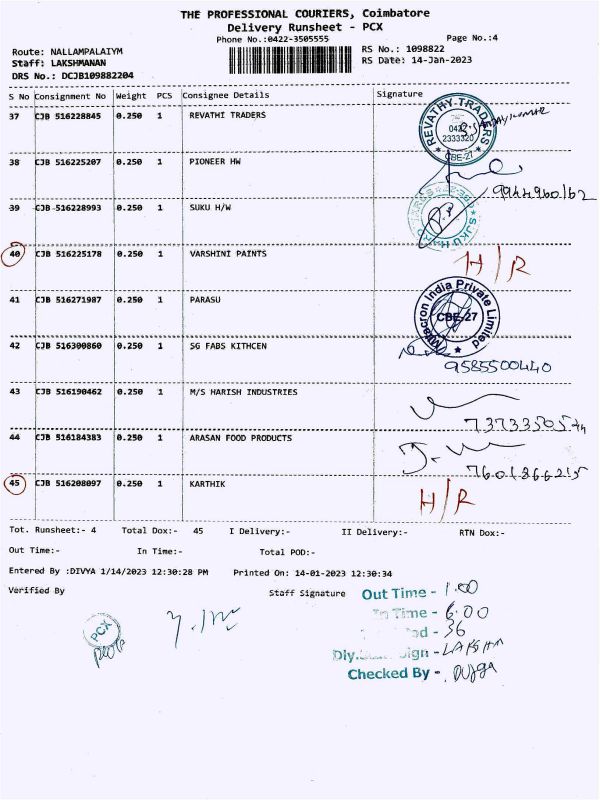 THE PROFESSIONAL COURIERS, Coimbatore
Delivery Runsheet - PCX
Phone No.:0422-3505555
Page No.:4
Route: NALLAMPALAIYM
RS No.: 1098822
Staff: LAKSHMANAN
RS Date: 14-Jan-2023
DRS No.: DCJB109882204
S No Consignment No Weight PCS Consignee Details Signature
37 CJB 516228845 0.250 1 REVATHI TRADERS
REVATHY TRADERS
0422
2333320
CBE-27
38 CJB 516225207 0.250 1 PIONEER HW
9944960162
39 CJB 516228993 0.250 1 SUKU H/W
40 CJB 516225178 0.250 1 VARSHINI PAINTS H/R
41 CJB 516271987 0.250 1 PARASU
India Private Limited
CBE-27
42 CJB 516300860 0.250 1 SG FABS KITHCEN
9585500440
43 CJB 516190462 0.250 1 M/S HARISH INDUSTRIES
44 CJB 516184383 0.250 1 ARASAN FOOD PRODUCTS
7601866215
45 CJB 516208097 0.250 1 KARTHIK H/R
Tot. Runsheet:- 4 Total Dox:- 45 I Delivery:- II Delivery:- RTN Dox:-
Out Time:- In Time:- Total POD:-
Entered By :DIVYA 1/14/2023 12:30:28 PM Printed On: 14-01-2023 12:30:34
Verified By Staff Signature
Out Time - 1.00
In Time - 6.00
36
Sign - LAKSHM
Checked By - Durga
PCX